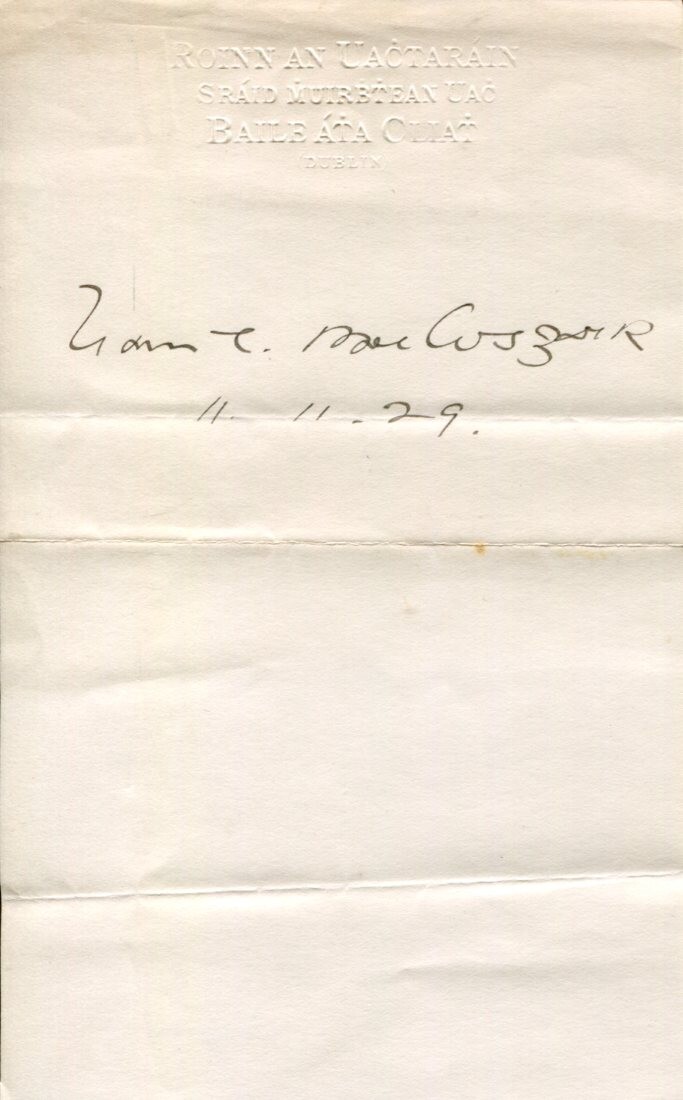 ROINN AN UAĊTARÁIN
SRÁID ṀUIRḂṪEAN UAĊ
BAILE ÁṪA CLIAṪ
(DUBLIN)
Liam T. Mac Cosgair
11. 11. 29.